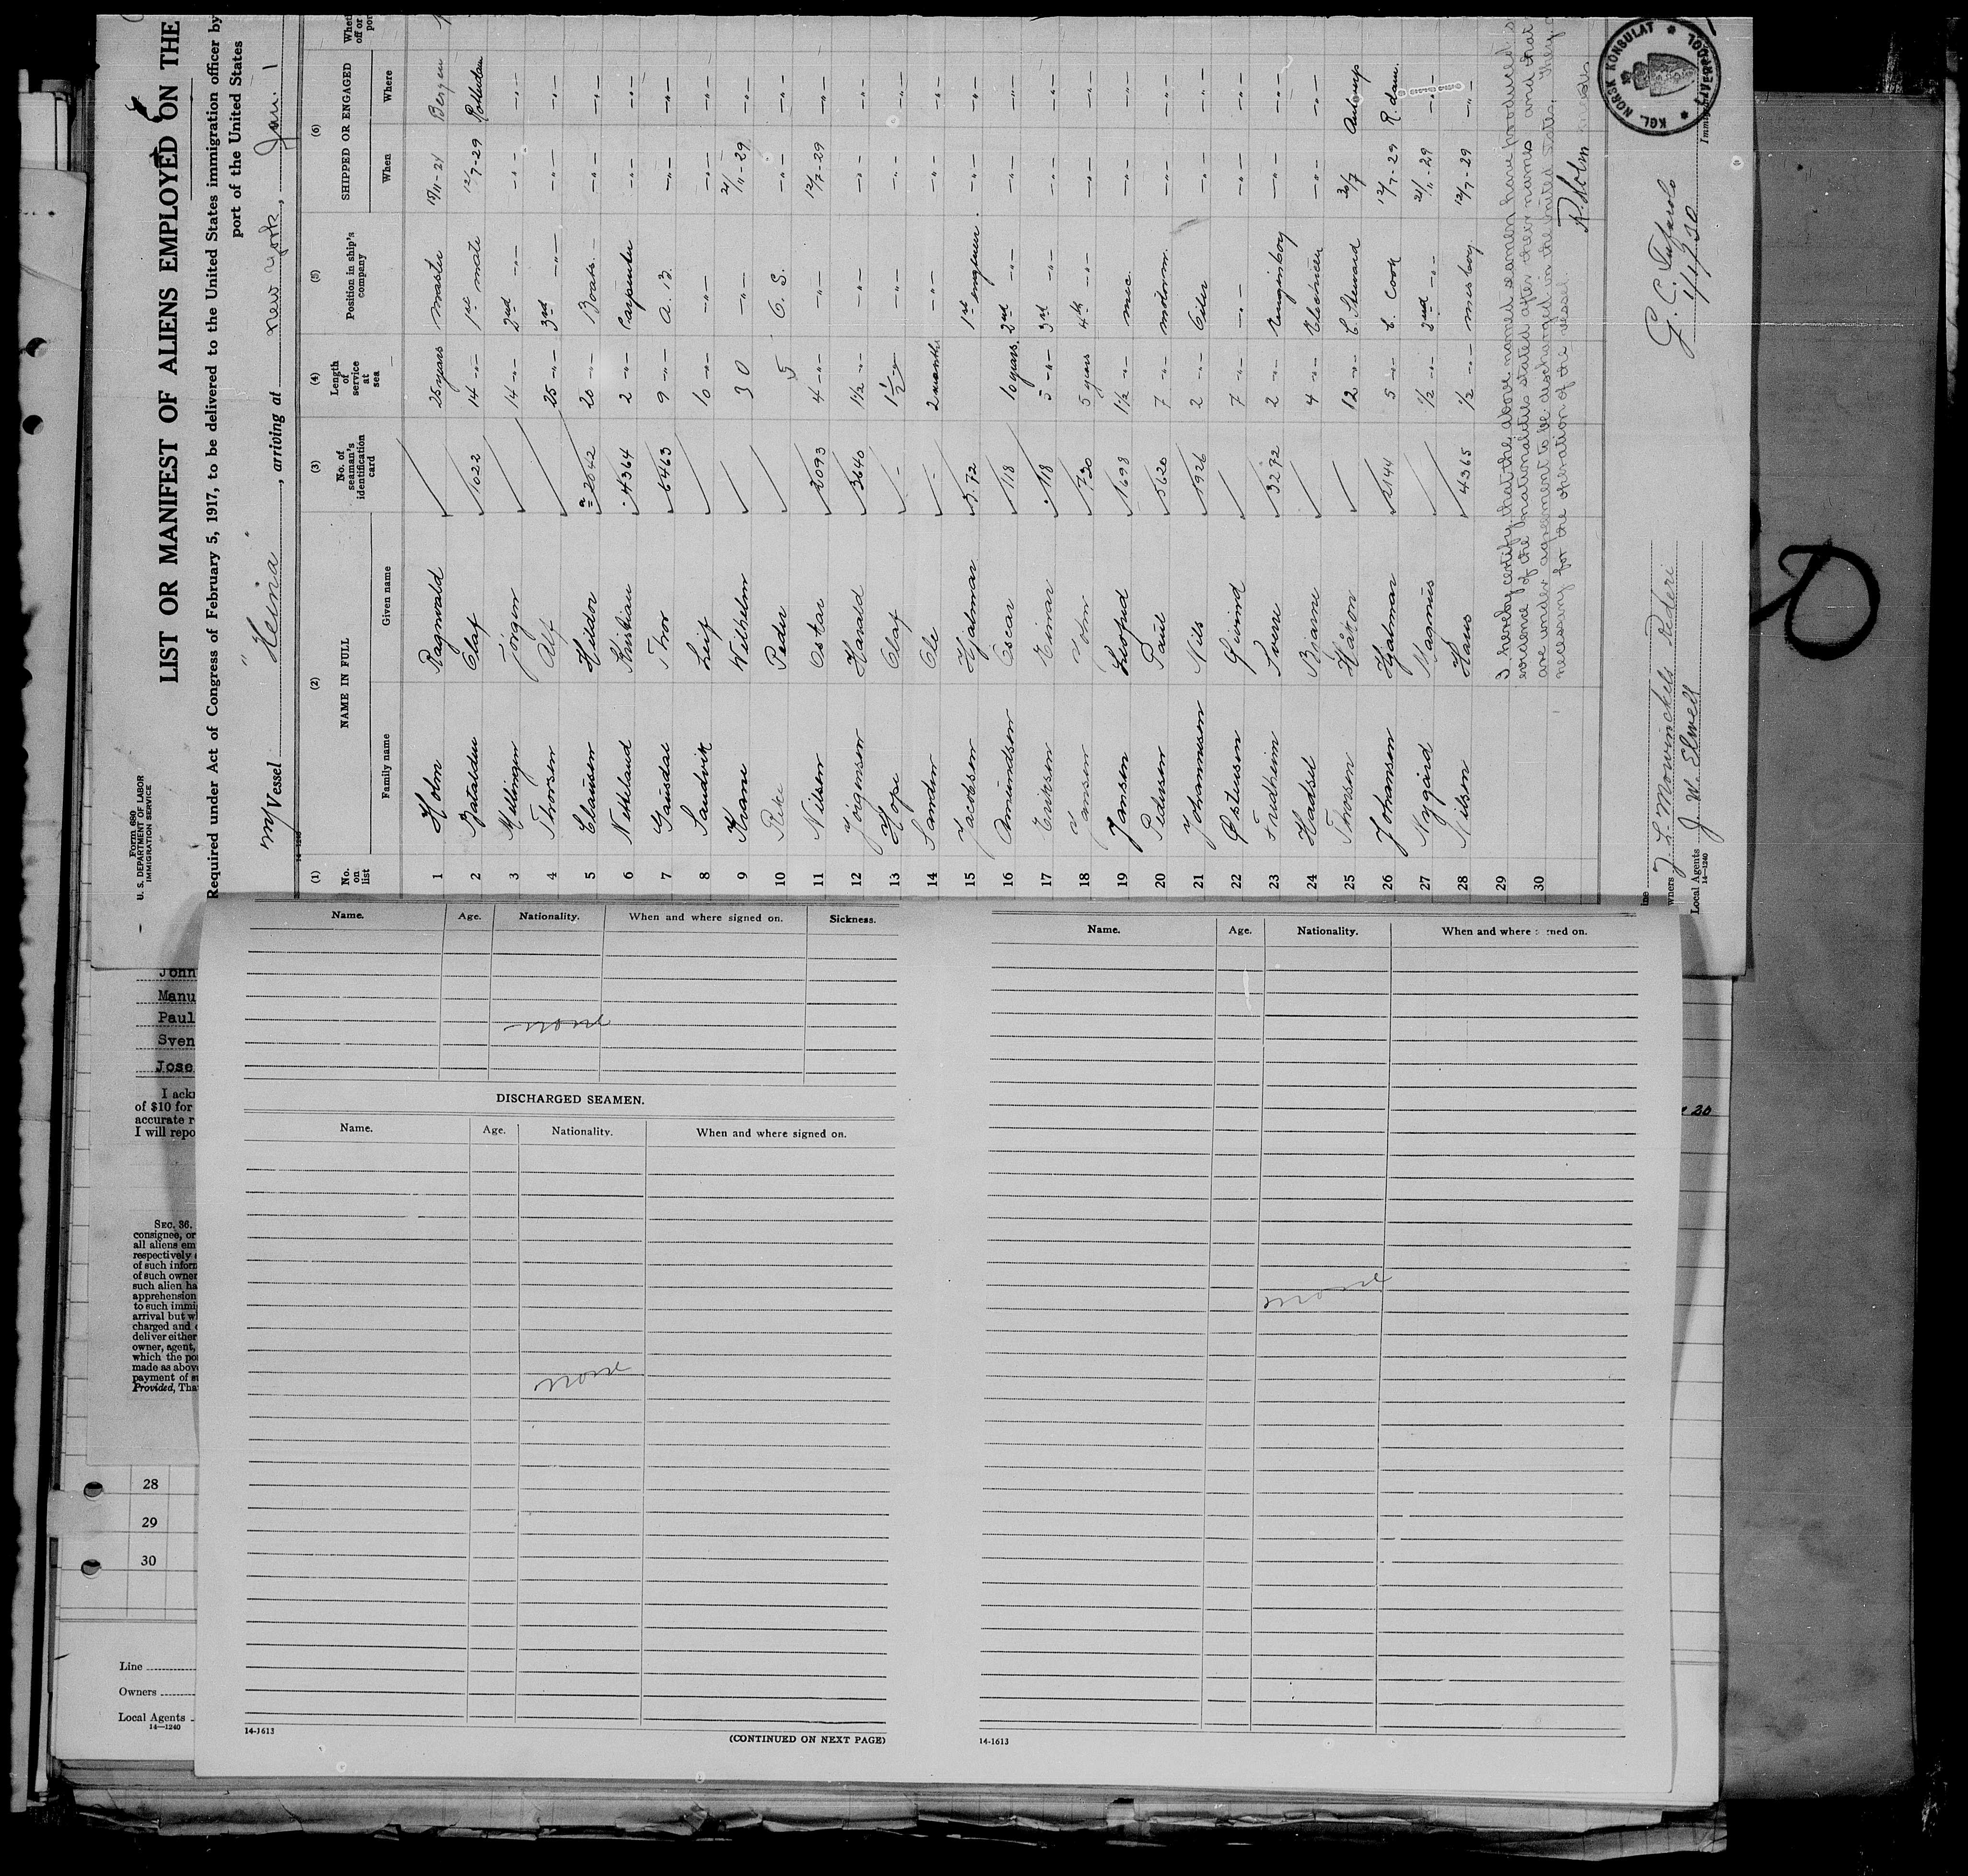 Form 680
U. S. DEPARTMENT OF LABOR
IMMIGRATION SERVICE
LIST OR MANIFEST OF ALIENS EMPLOYED ON THE
Required under Act of Congress of February 5, 1917, to be delivered to the United States immigration officer by
port of the United States
Vessel "Heina" , arriving at New York, Jan. 1
(1) (2) (3) (4) (5) (6)
No. on list NAME IN FULL No. of seaman's identification card Length of service at sea Position in ship's company SHIPPED OR ENGAGED
Family name Given name When Where
1 Holm Ragnvald 25 years Master Bergen
2 Olaf 1022 14 -"- 1st mate 12/7-29 Rotterdam
3 Mellingen Jörgen 14 -"- 2nd -"- -"- -"-
4 Thorsen Alf 25 -"- 3rd -"- -"- -"-
5 Clausen Hildor 2042 20 -"- Boats. -"- -"-
6 Nethland Kristian 4364 2 -"- Carpenter -"- -"-
7 Gausdal Thor 6463 9 -"- A. B. -"- -"-
8 Sandvik Leif 10 -"- -"- -"- -"-
9 Krane Wilhelm 30 -"- 21/11-29 -"-
10 Peder 5 O. S. -"- -"-
11 Nilsen Ostar 2093 4 -"- -"- 12/7-29 -"-
12 Jörgensen Harald 3640 1 1/2 -"- -"- -"- -"-
13 Hope Olaf - 1 1/2 -"- -"- -"- -"-
14 Sanden Ole - 2 months -"- -"- -"-
15 Jacobsen Hjalmar 3.72 1st engineer. -"- -"-
16 Amundsen Oscar 118 10 years. 2nd -"- -"- -"-
17 Eriksen Einar 118 5 -"- 3rd -"- -"- -"-
18 Jansen John 730 5 years 4th -"- -"- -"-
19 Jansen Leopold 1698 1 1/2 -"- mec. -"- -"-
20 Pedersen Paul 5620 7 -"- motorm. -"- -"-
21 Johannessen Nils 1926 2 -"- Oiler -"- -"-
22 Østensen Eivind 7 -"- -"- -"- -"-
23 Trudheim Sverre 3272 2 -"- Enginboy -"- -"-
24 Hadsel Bjarne 4 -"- Electricien -"- -"-
25 Thorsen Håkon 12 -"- C. Steward Antwerp
26 Johansen Hjalmar 2144 5 -"- C. Cook 12/7-29 R.dam.
27 Nygård Magnus 1/2 -"- 2nd -"- 21/11-29 -"-
28 Nilsen Hans 4365 1/2 -"- mesboy 12/7-29 -"-
29
30
I hereby certify that the above named seamen have produced
evidence of the nationalities stated after their names and that
are under agreement to be discharged in the United States, they
necessary for the operation of the vessel.
R. Holm
KGL. NORSK KONSULAT
Owners J. L. Mowinckels Rederi
Local Agents J. W. Elwell
14-1240
G. C.
John
Manu
Paul
Sven
Jose
I ack
of $10 for
accurate r
I will repo
SEC. 36.
consignee, or
all aliens em
respectively
of such inform
of such owner
such alien ha
apprehension
to such immi
arrival but w
charged and
deliver either
owner, agent,
which the po
made as above
payment of s
Provided, Tha
28
29
30
Line
Owners
Local Agents
14—1240
Name. Age. Nationality. When and where signed on. Sickness.
none
DISCHARGED SEAMEN.
Name. Age. Nationality. When and where signed on.
none
14-1613
(CONTINUED ON NEXT PAGE)
Name. Age. Nationality. When and where signed on.
none
14-1613
20